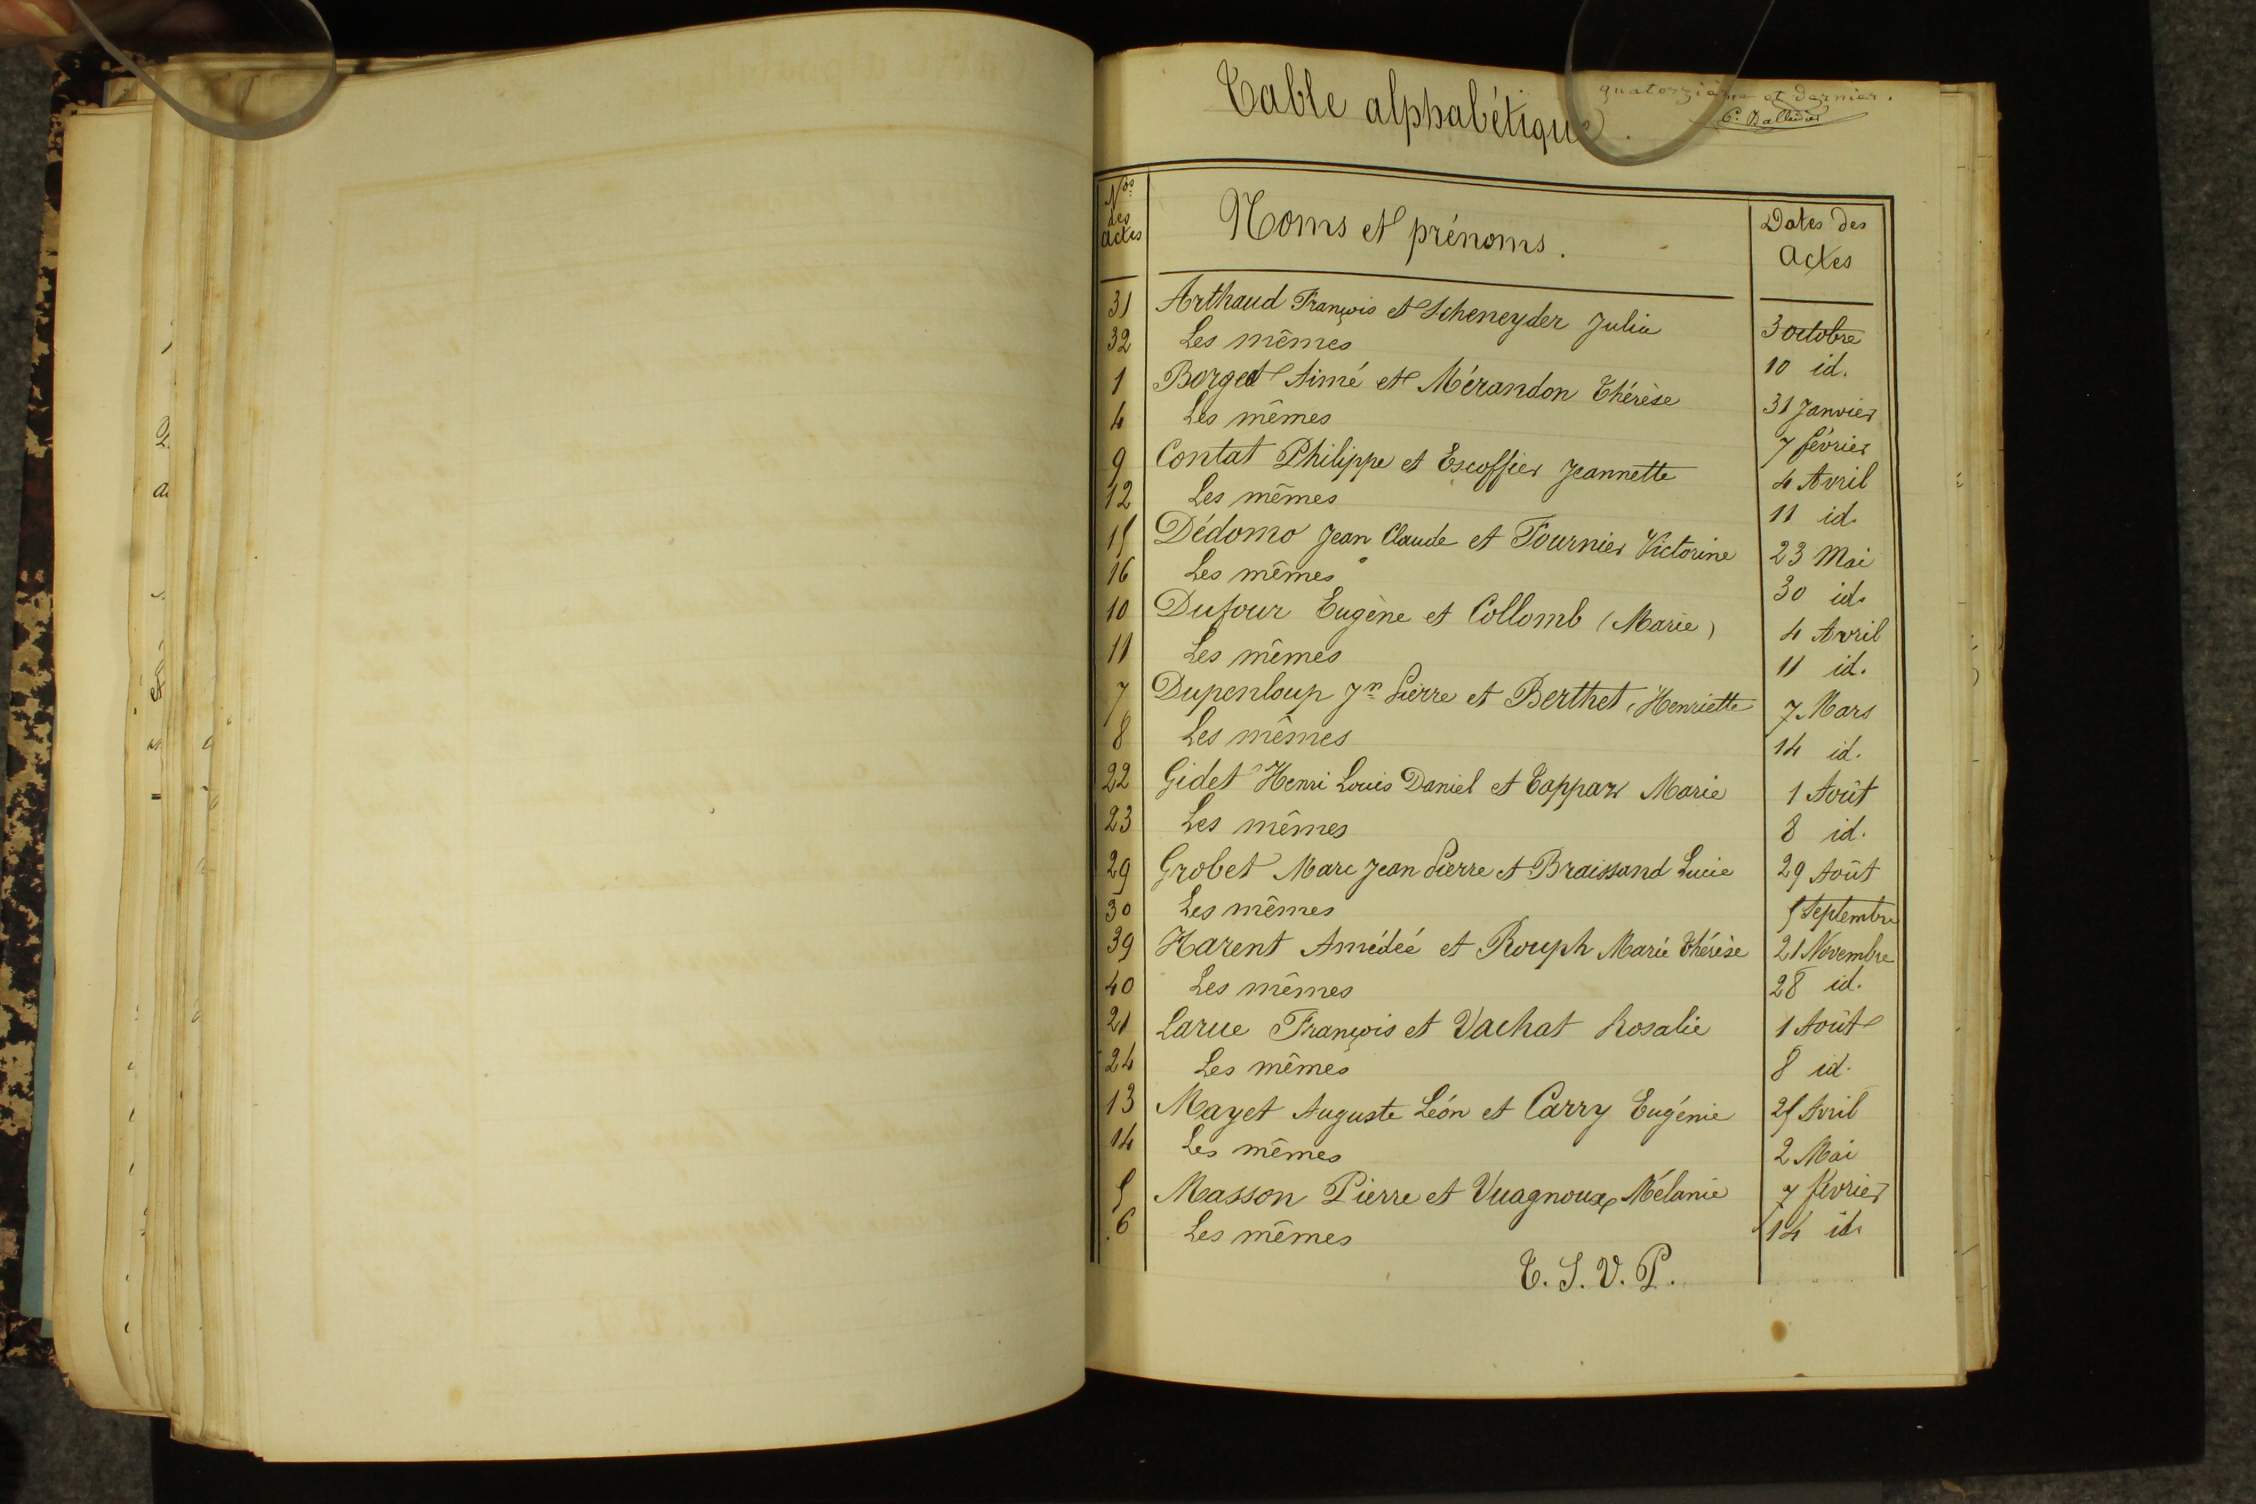 quatorzième et dernier.
Table alphabétique.
Nos des actes
Noms et prénoms.
Dates des Actes
31 Arthaud François et Scheneyder Julia 3 octobre
32 Les mêmes 10 id.
1 Borget Aimé et Mérandon Thérèse 31 Janvier
4 Les mêmes 7 février
9 Contat Philippe et Escoffier Jeannette 4 Avril
12 Les mêmes 11 id.
15 Dédomo Jean Claude et Fournier Victorine 23 Mai
16 Les mêmes 30 id.
10 Dufour Eugène et Collomb (Marie) 4 Avril
11 Les mêmes 11 id.
7 Dupenloup Jn Pierre et Berthet, Henriette 7 Mars
8 Les mêmes 14 id.
22 Gidet Henri Louis Daniel et Tappaz Marie 1 Août
23 Les mêmes 8 id.
29 Grobet Marc Jean Pierre et Braissand Lucie 29 Août
30 Les mêmes 5 Septembre
39 Harent Amédée et Rouph Marie Thérèse 21 Novembre
40 Les mêmes 28 id.
21 Larue François et Vachat Rosalie 1 Août
24 Les mêmes 8 id.
13 Mayet Auguste Léon et Carry Eugénie 25 Avril
14 Les mêmes 2 Mai
5 Masson Pierre et Vuagnoux Mélanie 7 février
6 Les mêmes 14 id.
T. S. V. P.